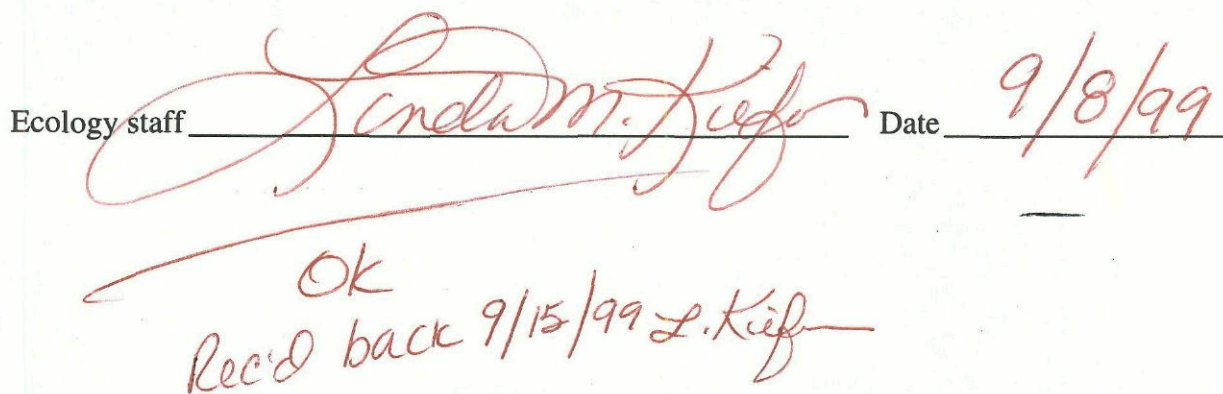 Ecology staff Linda M. Kiefer Date 9/8/99
OK
Rec'd back 9/15/99 L. Kiefer